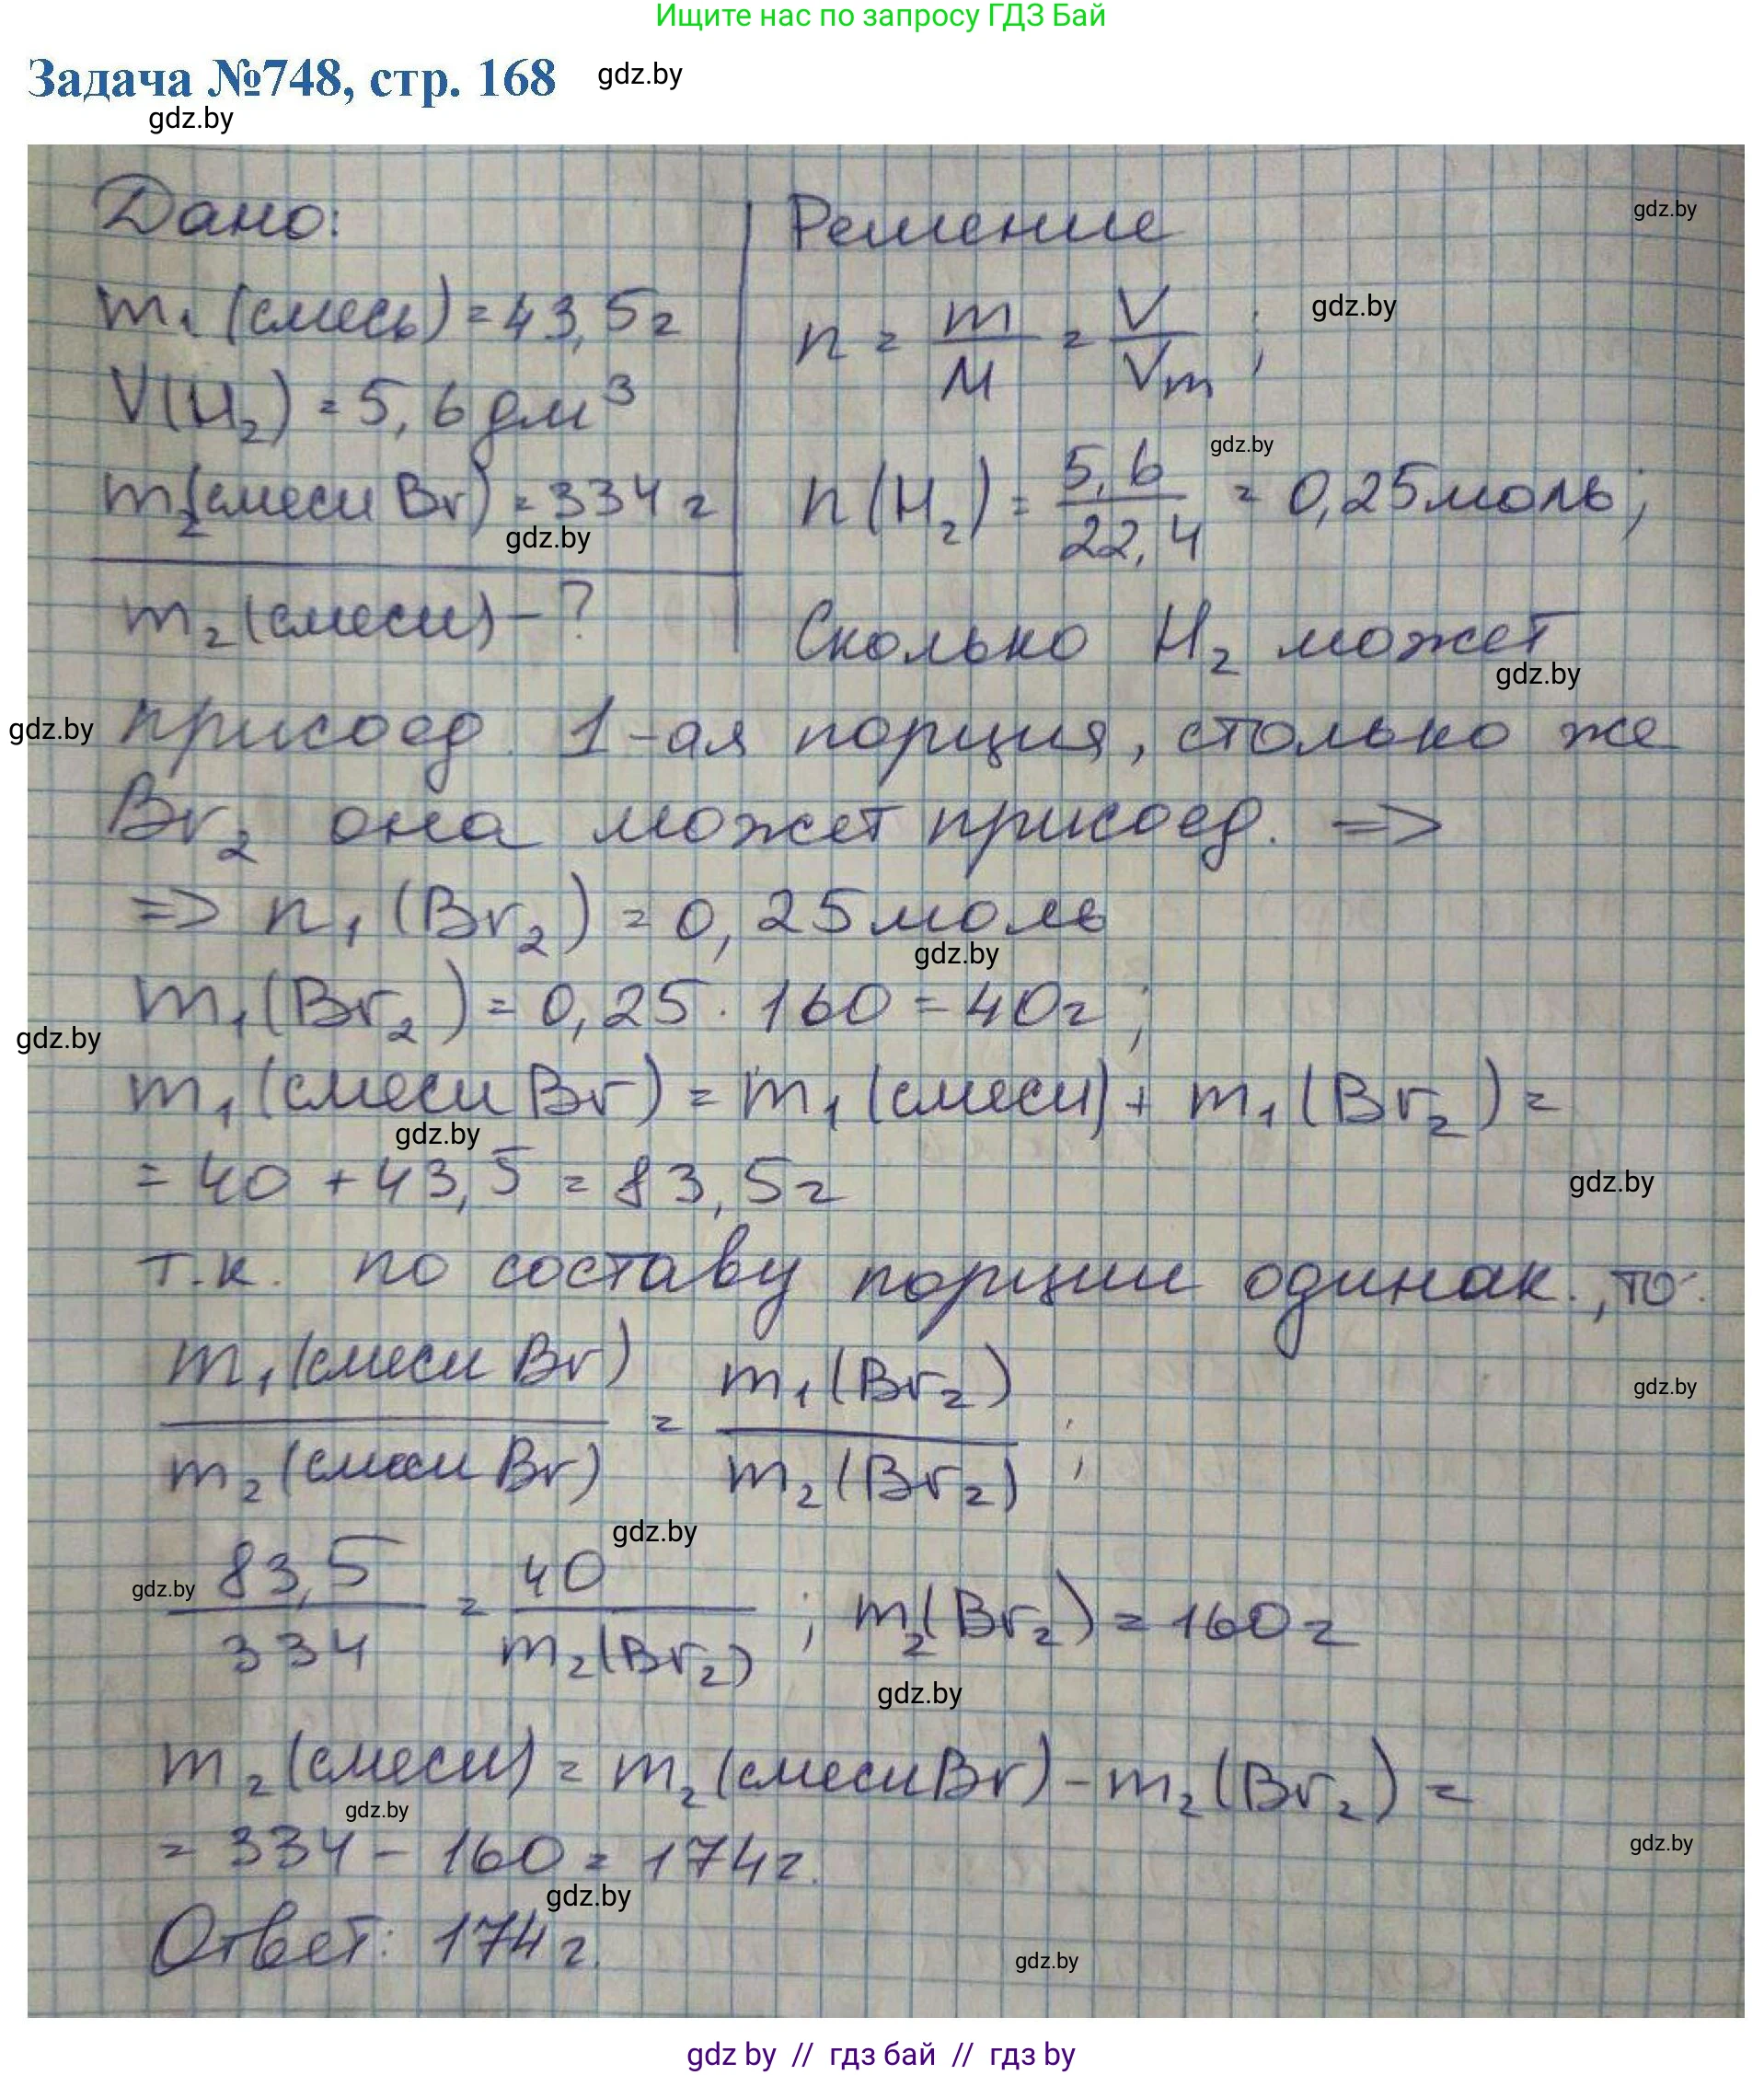 Ищите нас по запросу ГДЗ Бай
Задача №748, стр. 168
gdz.by
gdz.by
Дано:
Решение
gdz.by
m₁(смесь) = 43,5 г
n = m/M = V/Vm;
gdz.by
V(H₂) = 5,6 дм³
gdz.by
m₂(смеси Br) = 334 г
n(H₂) = 5,6/22,4 = 0,25 моль;
gdz.by
m₂(смеси) - ?
Сколько H₂ может
gdz.by
gdz.by
присоед. 1-ая порция, столько же
Br₂ она может присоед. =>
=> n₁(Br₂) = 0,25 моль
gdz.by
m₁(Br₂) = 0,25 · 160 = 40 г;
gdz.by
m₁(смеси Br) = m₁(смеси) + m₁(Br₂) =
gdz.by
= 40 + 43,5 = 83,5 г
gdz.by
т.к. по составу порции одинак., то:
m₁(смеси Br)/m₂(смеси Br) = m₁(Br₂)/m₂(Br₂);
gdz.by
gdz.by
gdz.by
83,5/334 = 40/m₂(Br₂); m₂(Br₂) = 160 г
gdz.by
m₂(смеси) = m₂(смеси Br) - m₂(Br₂) =
gdz.by
= 334 - 160 = 174 г.
gdz.by
gdz.by
Ответ: 174 г.
gdz.by
gdz by // гдз бай // гдз by